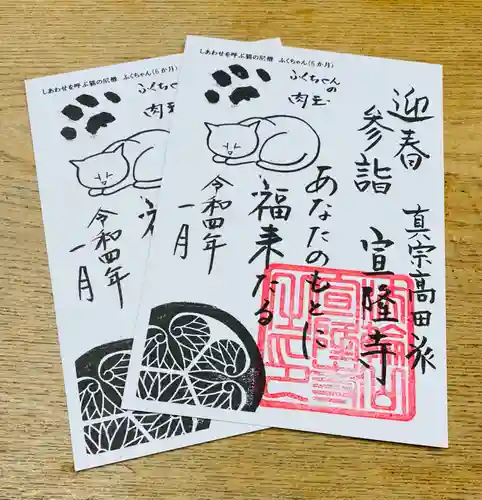 しあわせを呼ぶ猫の肛樽 ふくちゃん(5か月)
ふくちゃんの
肉玉
迎春
参詣
真宗高田派
宣隆寺
あなたのもとに
福来たる
令和四年
一月
しあわせを呼ぶ猫の肛樽 ふくちゃん(5か月)
ふくちゃん
肉
令和四年
一月